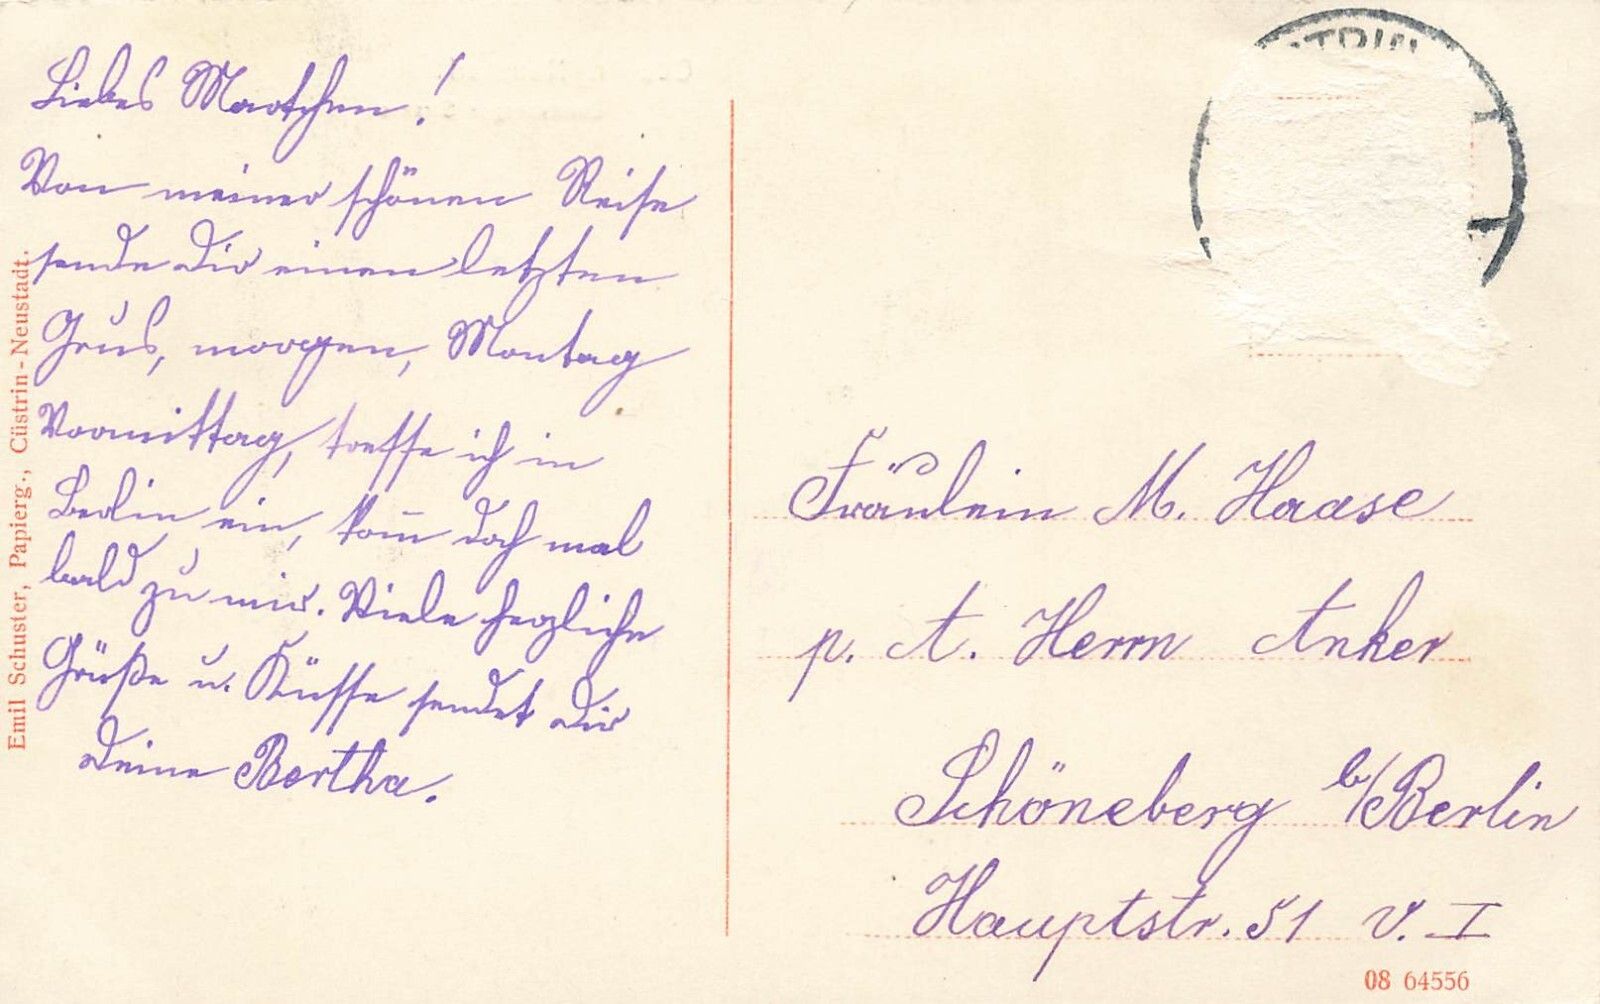 Liebes Martchen!
Von meiner schönen Reise
sende Dir einen letzten
Grus, morgen, Montag
Vormittag, treffe ich in
Berlin ein, kom̄ doch mal
bald zu mir. Viele herzliche
Grüße u. Küsse sendet Dir
Deine Bertha.
Emil Schuster, Papierg., Cüstrin-Neustadt.
Fräulein M. Haase
p. A. Herrn Anker
Schöneberg b/Berlin
Hauptstr. 51 v. I
08 64556